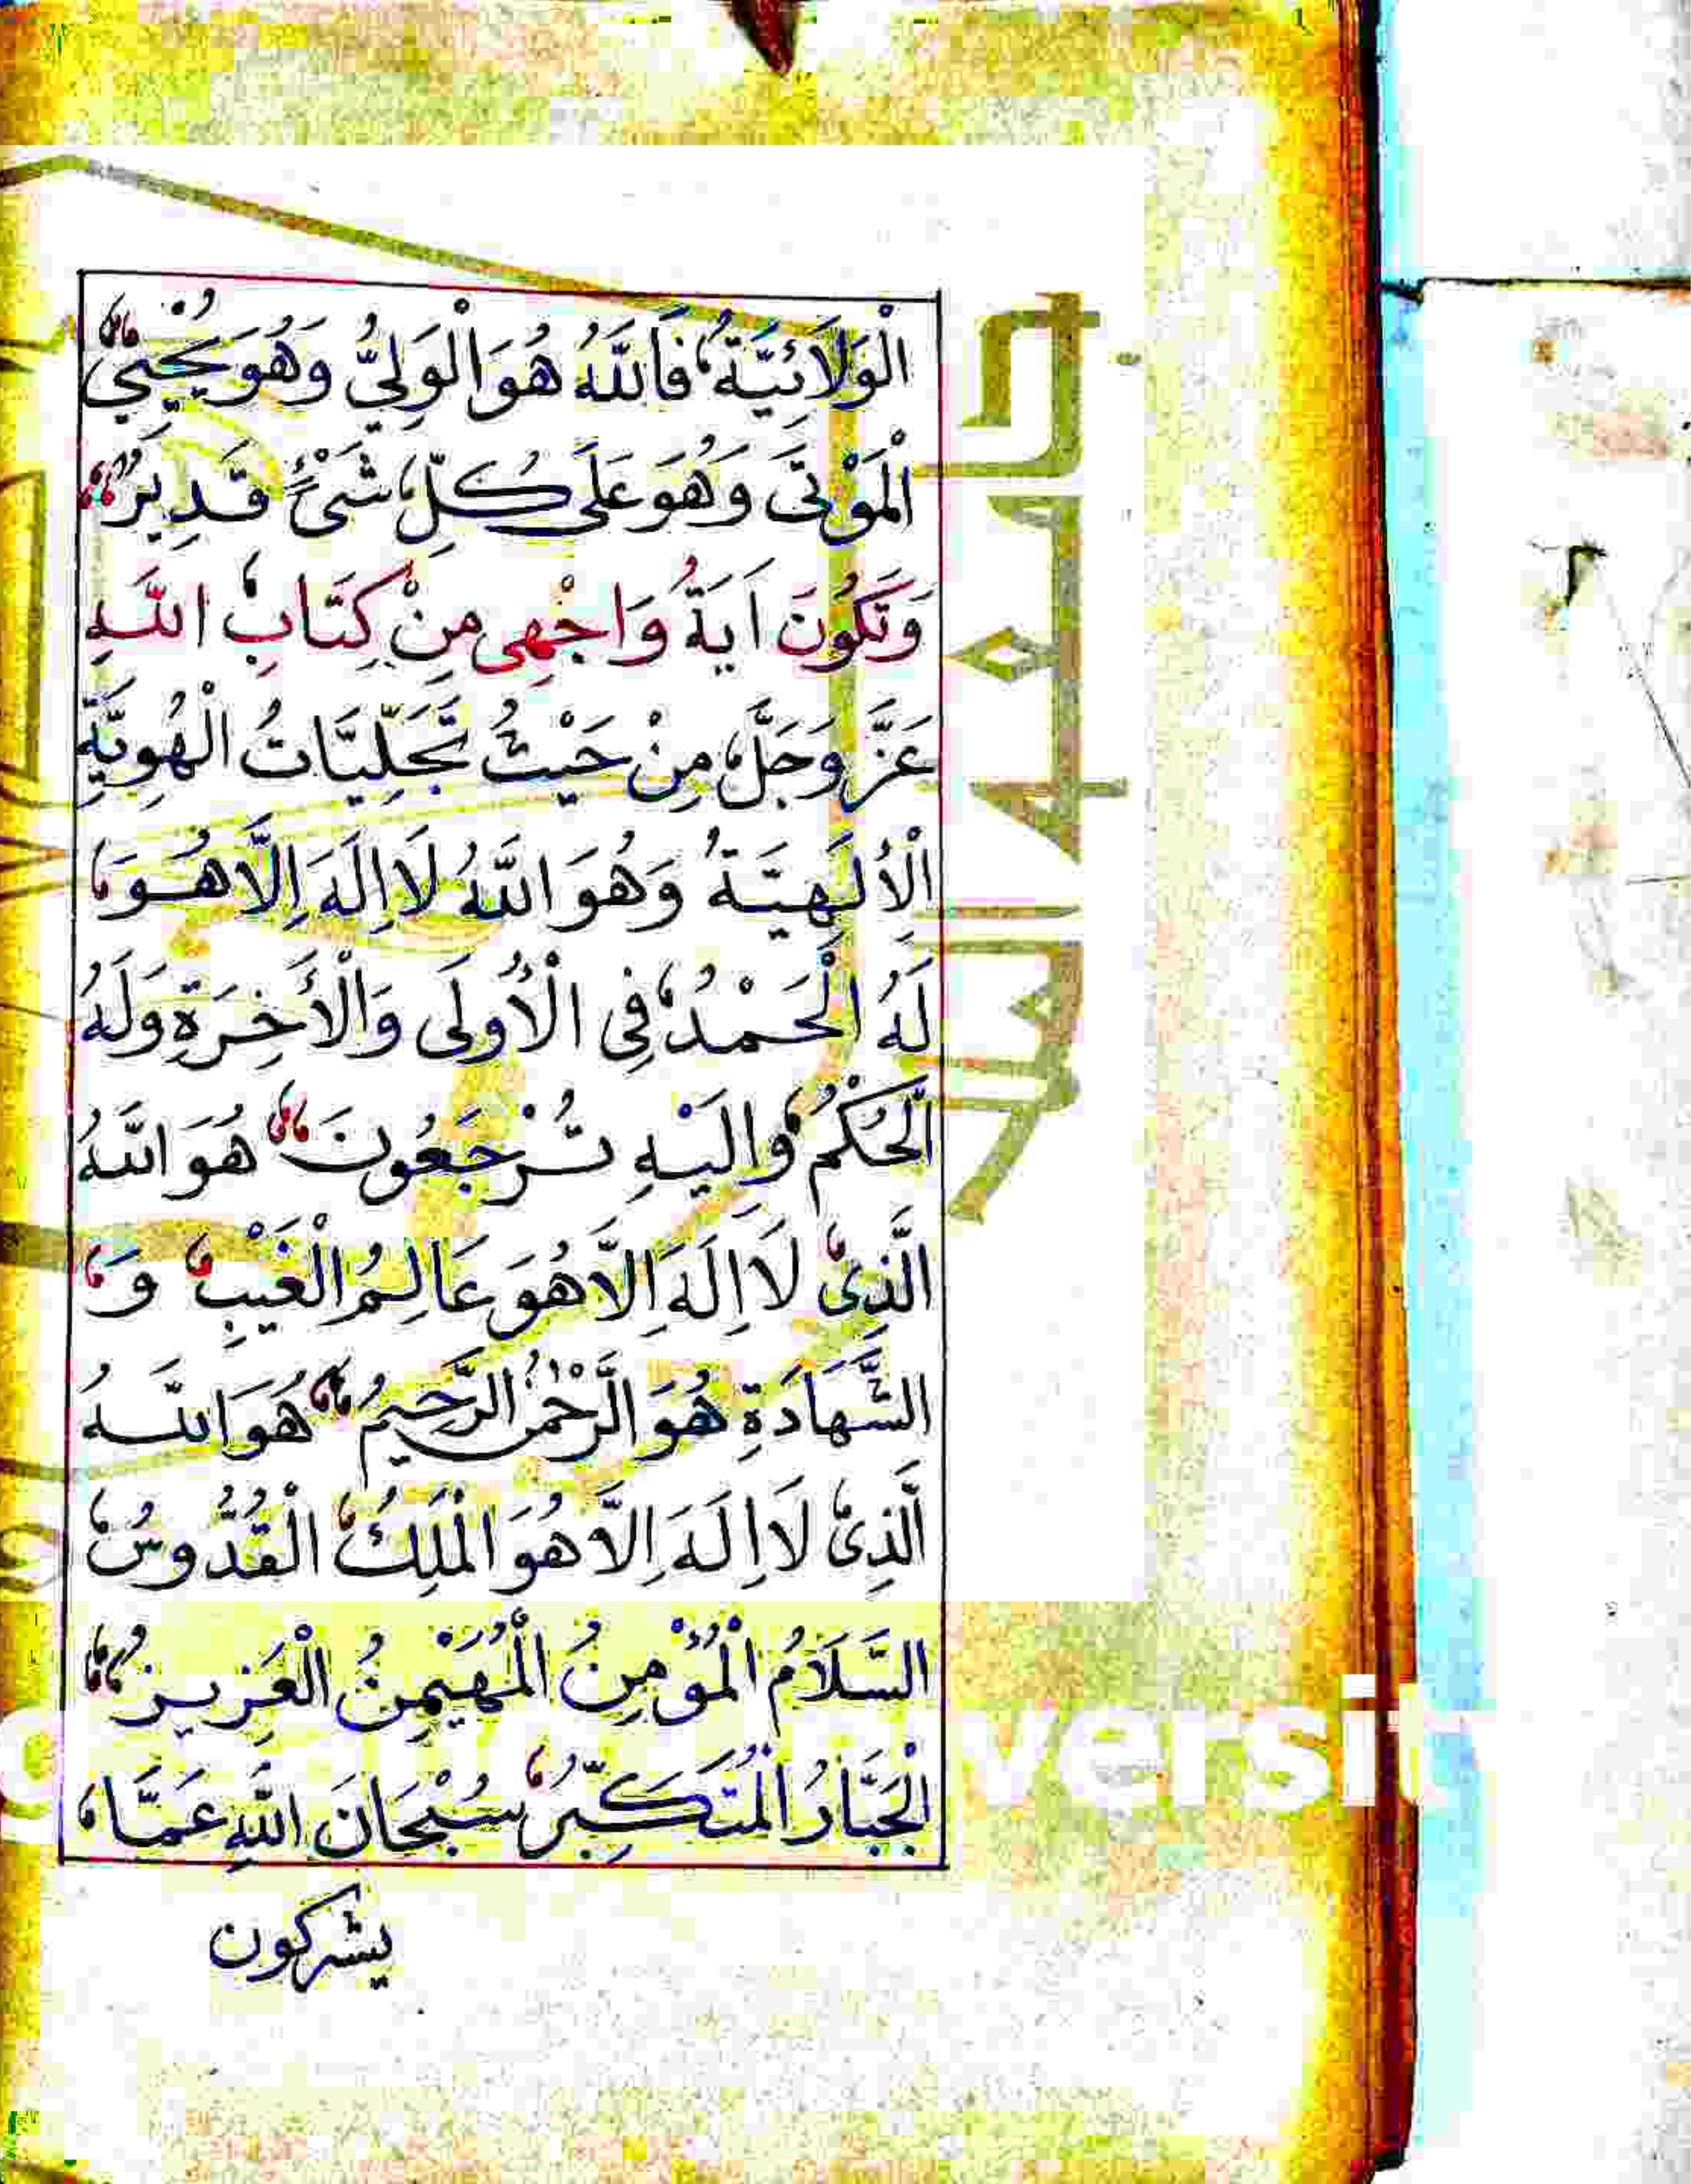 الْوَلَائِيَّةُ، فَاللَّهُ هُوَ الْوَلِيُّ وَهُوَ يُحْيِي
الْمَوْتَى وَهُوَ عَلَى كُلِّ شَىْءٍ قَدِيرٌ،،
وَتَكُونَ اَيَةُ وَاجْهِى مِنْ كِتَابِ، اللَّهِ
عَزَّ وَجَلَّ، مِنْ حَيْثُ تَجَلِّيَّاتُ الْهُوِيَّةِ
الْأُلَهِيَّةُ وَهُوَ اللَّهُ لَا اِلَهَ اِلَّا هُوَ،
لَهُ الْحَمْدُ، فِى الْأُولَى وَالْأَخِرَةِ وَلَهُ
الْحُكْمُ، وَاِلَيْهِ تُرْجَعُونَ،، هُوَ اللَّهُ
الَّذِى، لَا اِلَهَ اِلَّا هُوَ عَالِمُ الْغَيْبِ، وَ،
الشَّهَادَةِ هُوَ الرَّحْمٰنُ الرَّحِيمُ،، هُوَ اللَّهُ
الَّذِى، لَا اِلَهَ اِلَّا هُوَ الْمَلِكُ، الْقُدُّوسُ،
السَّلَامُ الْمُؤْمِنُ الْمُهَيْمِنُ الْعَزِيزُ،،
الْجَبَّارُ الْمُتَكَبِّرُ، سُبْحَانَ اللَّهِ عَمَّا،
يشركون
versit